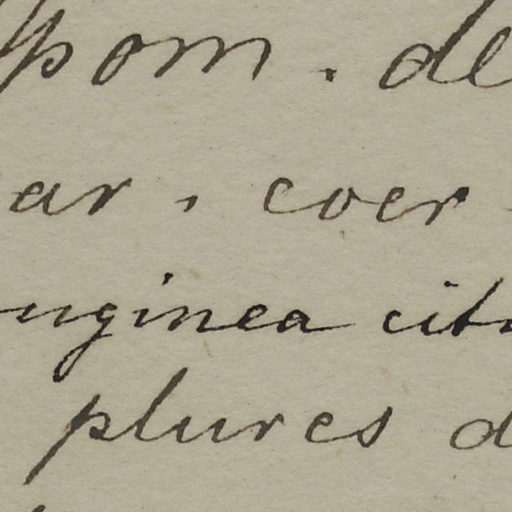 pom. de
ar. coer
uginea cit
plures d